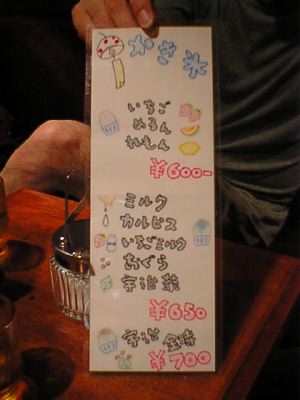 かき氷
いちご
めろん
れもん
¥600-
ミルク
カルピス
いちごミルク
おぐら
宇治茶
¥650
宇治 金時
¥700